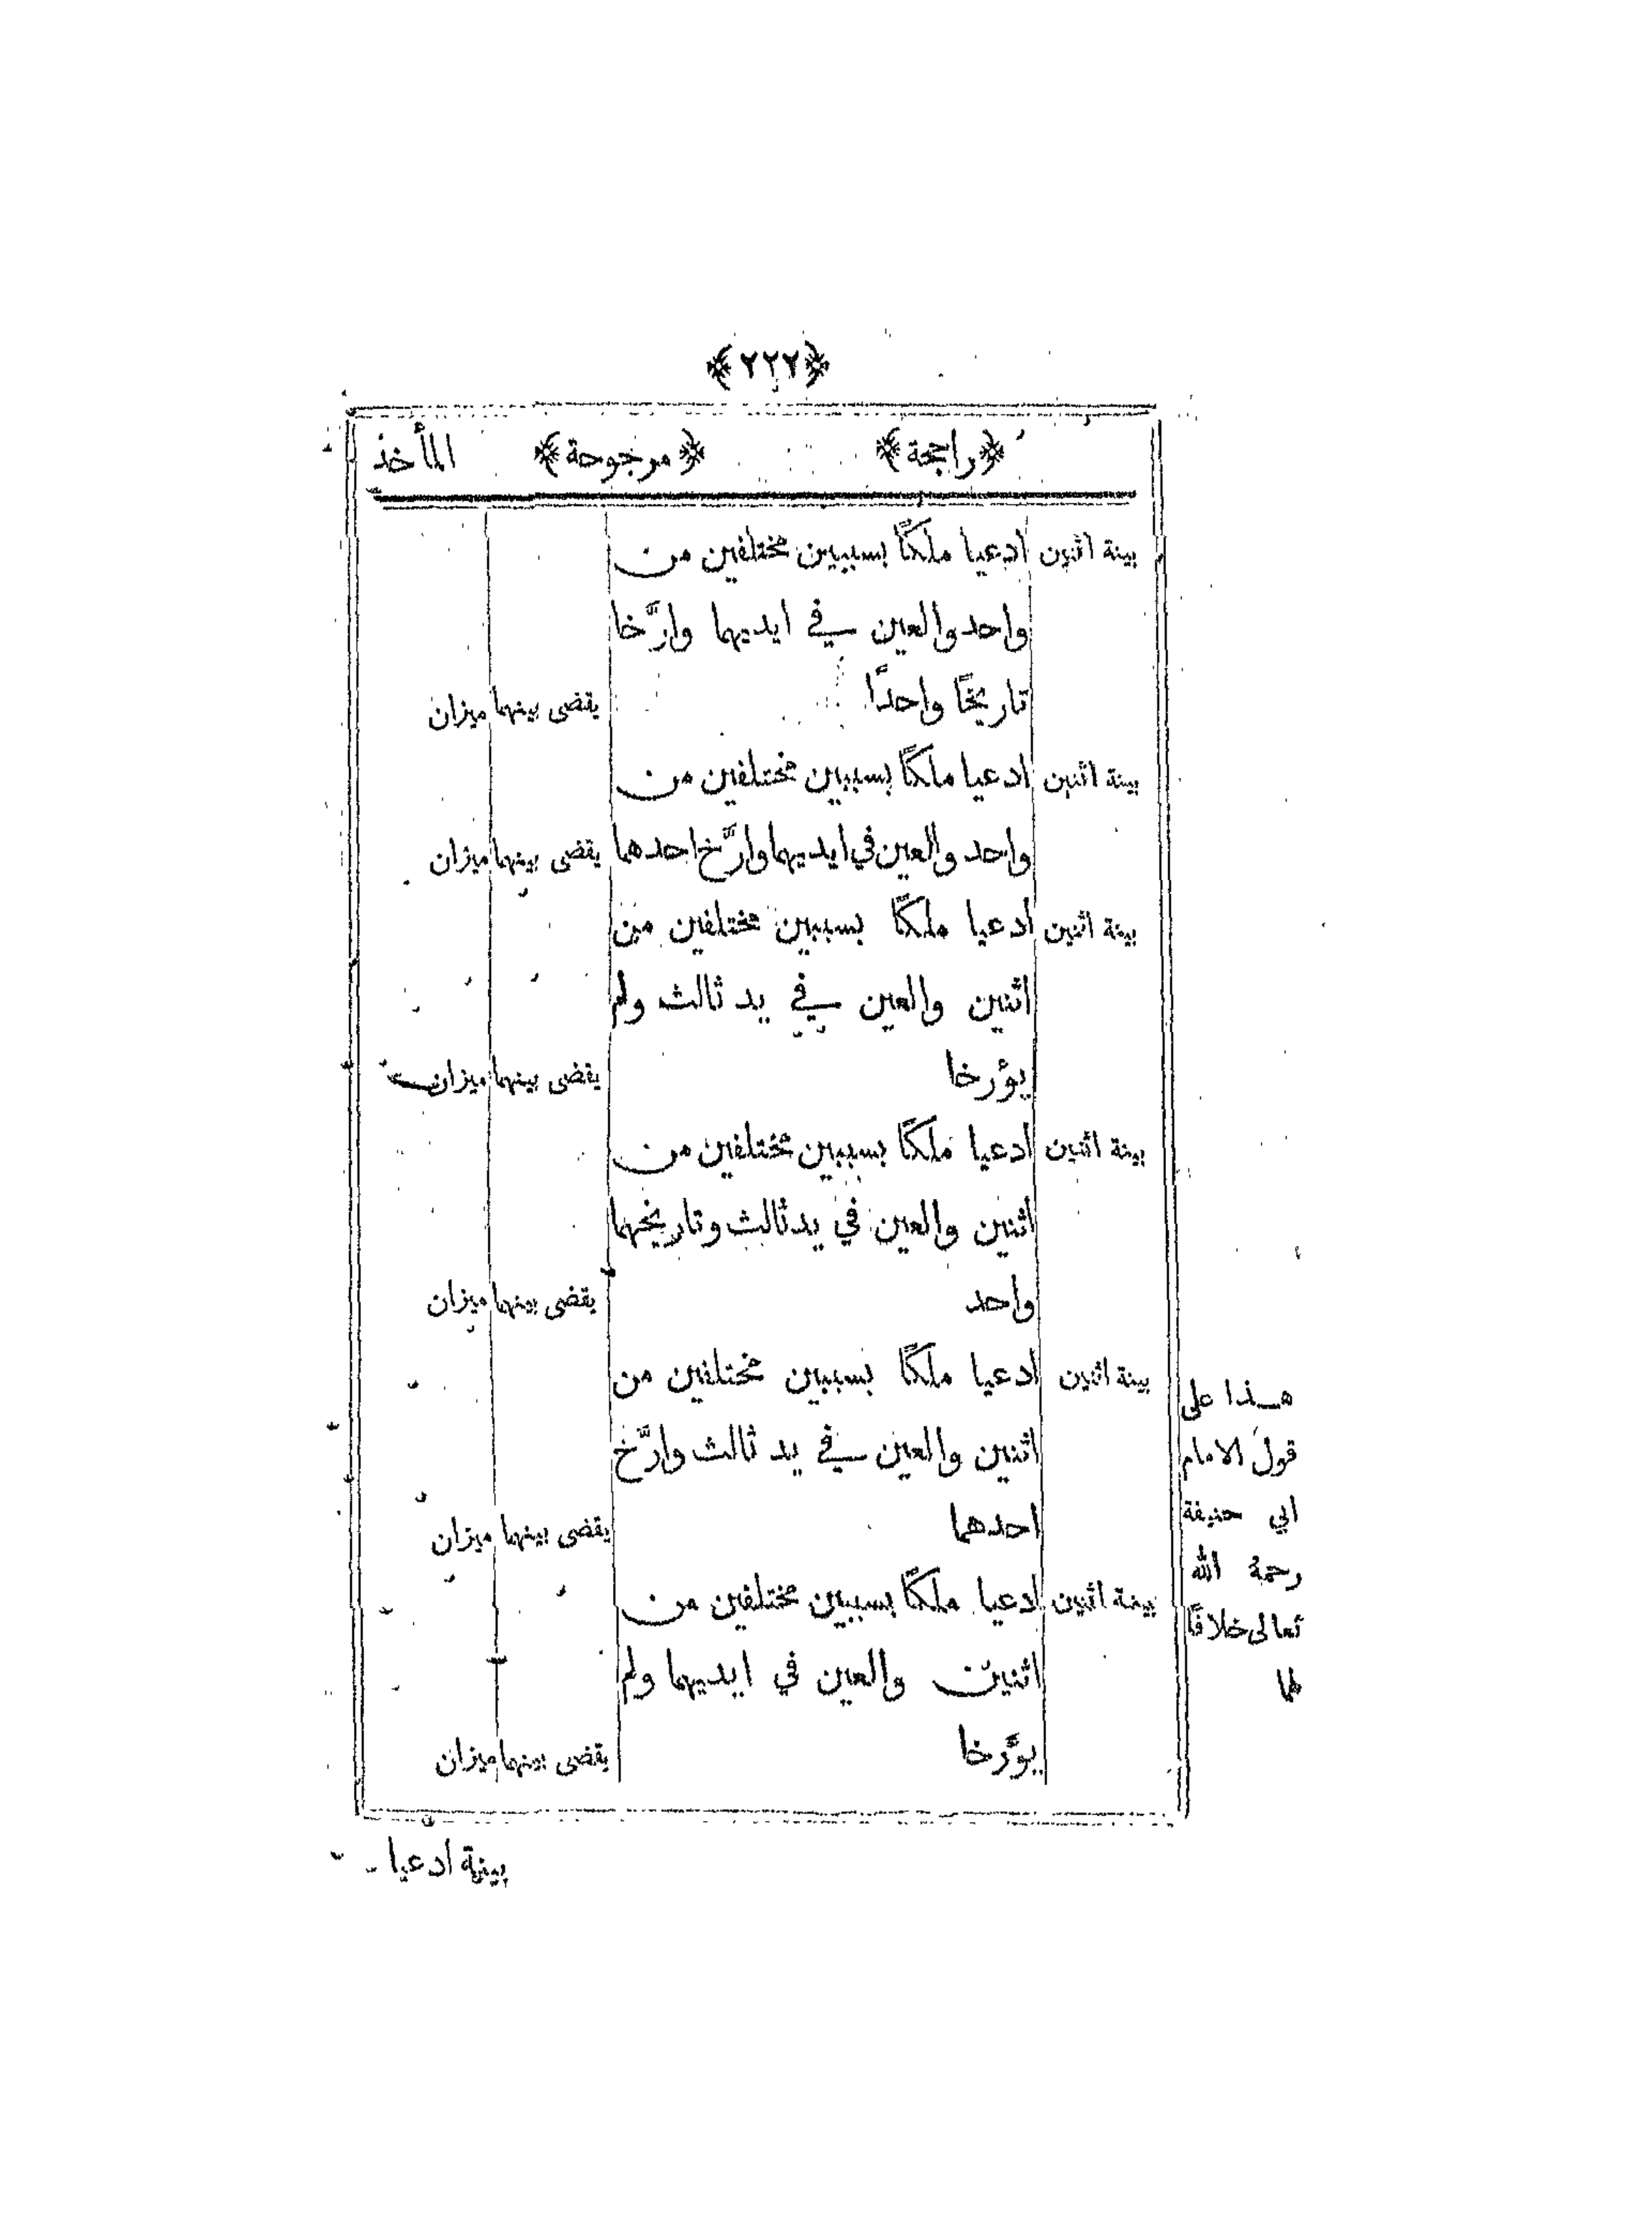 ﴿٢٢٢﴾
﴿راجحة﴾ ﴿مرجوحة﴾ المأخذ
بينة اثنين ادعيا ملكًا بسببين مختلفين من
واحد والعين في ايديهما وارَّخا
تاريخًا واحدًا يقضى بينهما ميزان
بينة اثنين ادعيا ملكًا بسببين مختلفين من
واحد والعين في ايديهما وارَّخ احدهما يقضى بينهما ميزان
بينة اثنين ادعيا ملكًا بسببين مختلفين من
اثنين والعين في يد ثالث ولم
يؤرخا يقضى بينهما ميزان
بينة اثنين ادعيا ملكًا بسببين مختلفين من
اثنين والعين في يد ثالث وتاريخهما
واحد يقضى بينهما ميزان
بينة اثنين ادعيا ملكًا بسببين مختلفين من
اثنين والعين في يد ثالث وارَّخ
احدهما يقضى بينهما ميزان
بينة اثنين ادعيا ملكًا بسببين مختلفين من
اثنين والعين في ايديهما ولم
يؤرخا يقضى بينهما ميزان
هذا على
قول الامام
ابي حنيفة
رحمة الله
تعالى خلافًا
لهما
بينة ادعيا